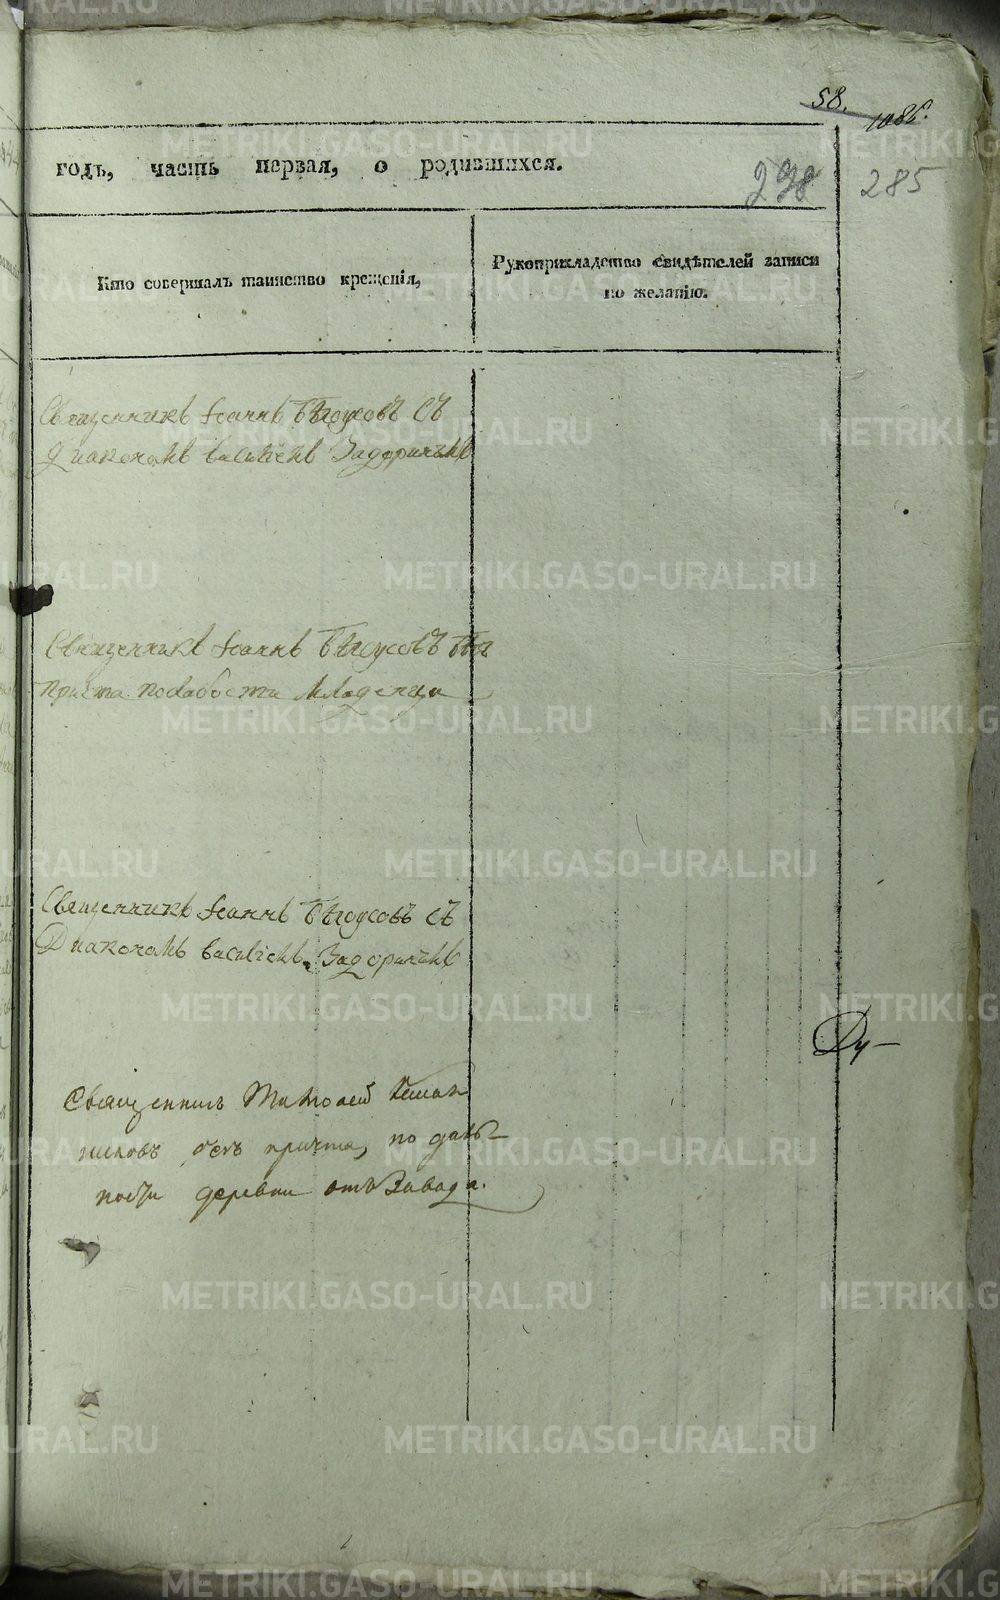 58.
1086.
годъ, часть первая, о родившихся.
298 285
Кто совершалъ таинство крещенія,
Рукоприкладство свидѣтелей записи
по желанію.
Священникъ Іоаннъ Бѣлоусовъ съ
Діакономъ Василіемъ Задоринымъ
Священникъ Іоаннъ Бѣлоусовъ безъ
причта послабости младенца
Священникъ Іоаннъ Бѣлоусовъ съ
Діакономъ Василіемъ Задоринымъ
Ду-
Священникъ Тимофей
никовъ безъ причта, по даль-
ности деревни отъ Завода.
METRIKI.GASO-URAL.RU